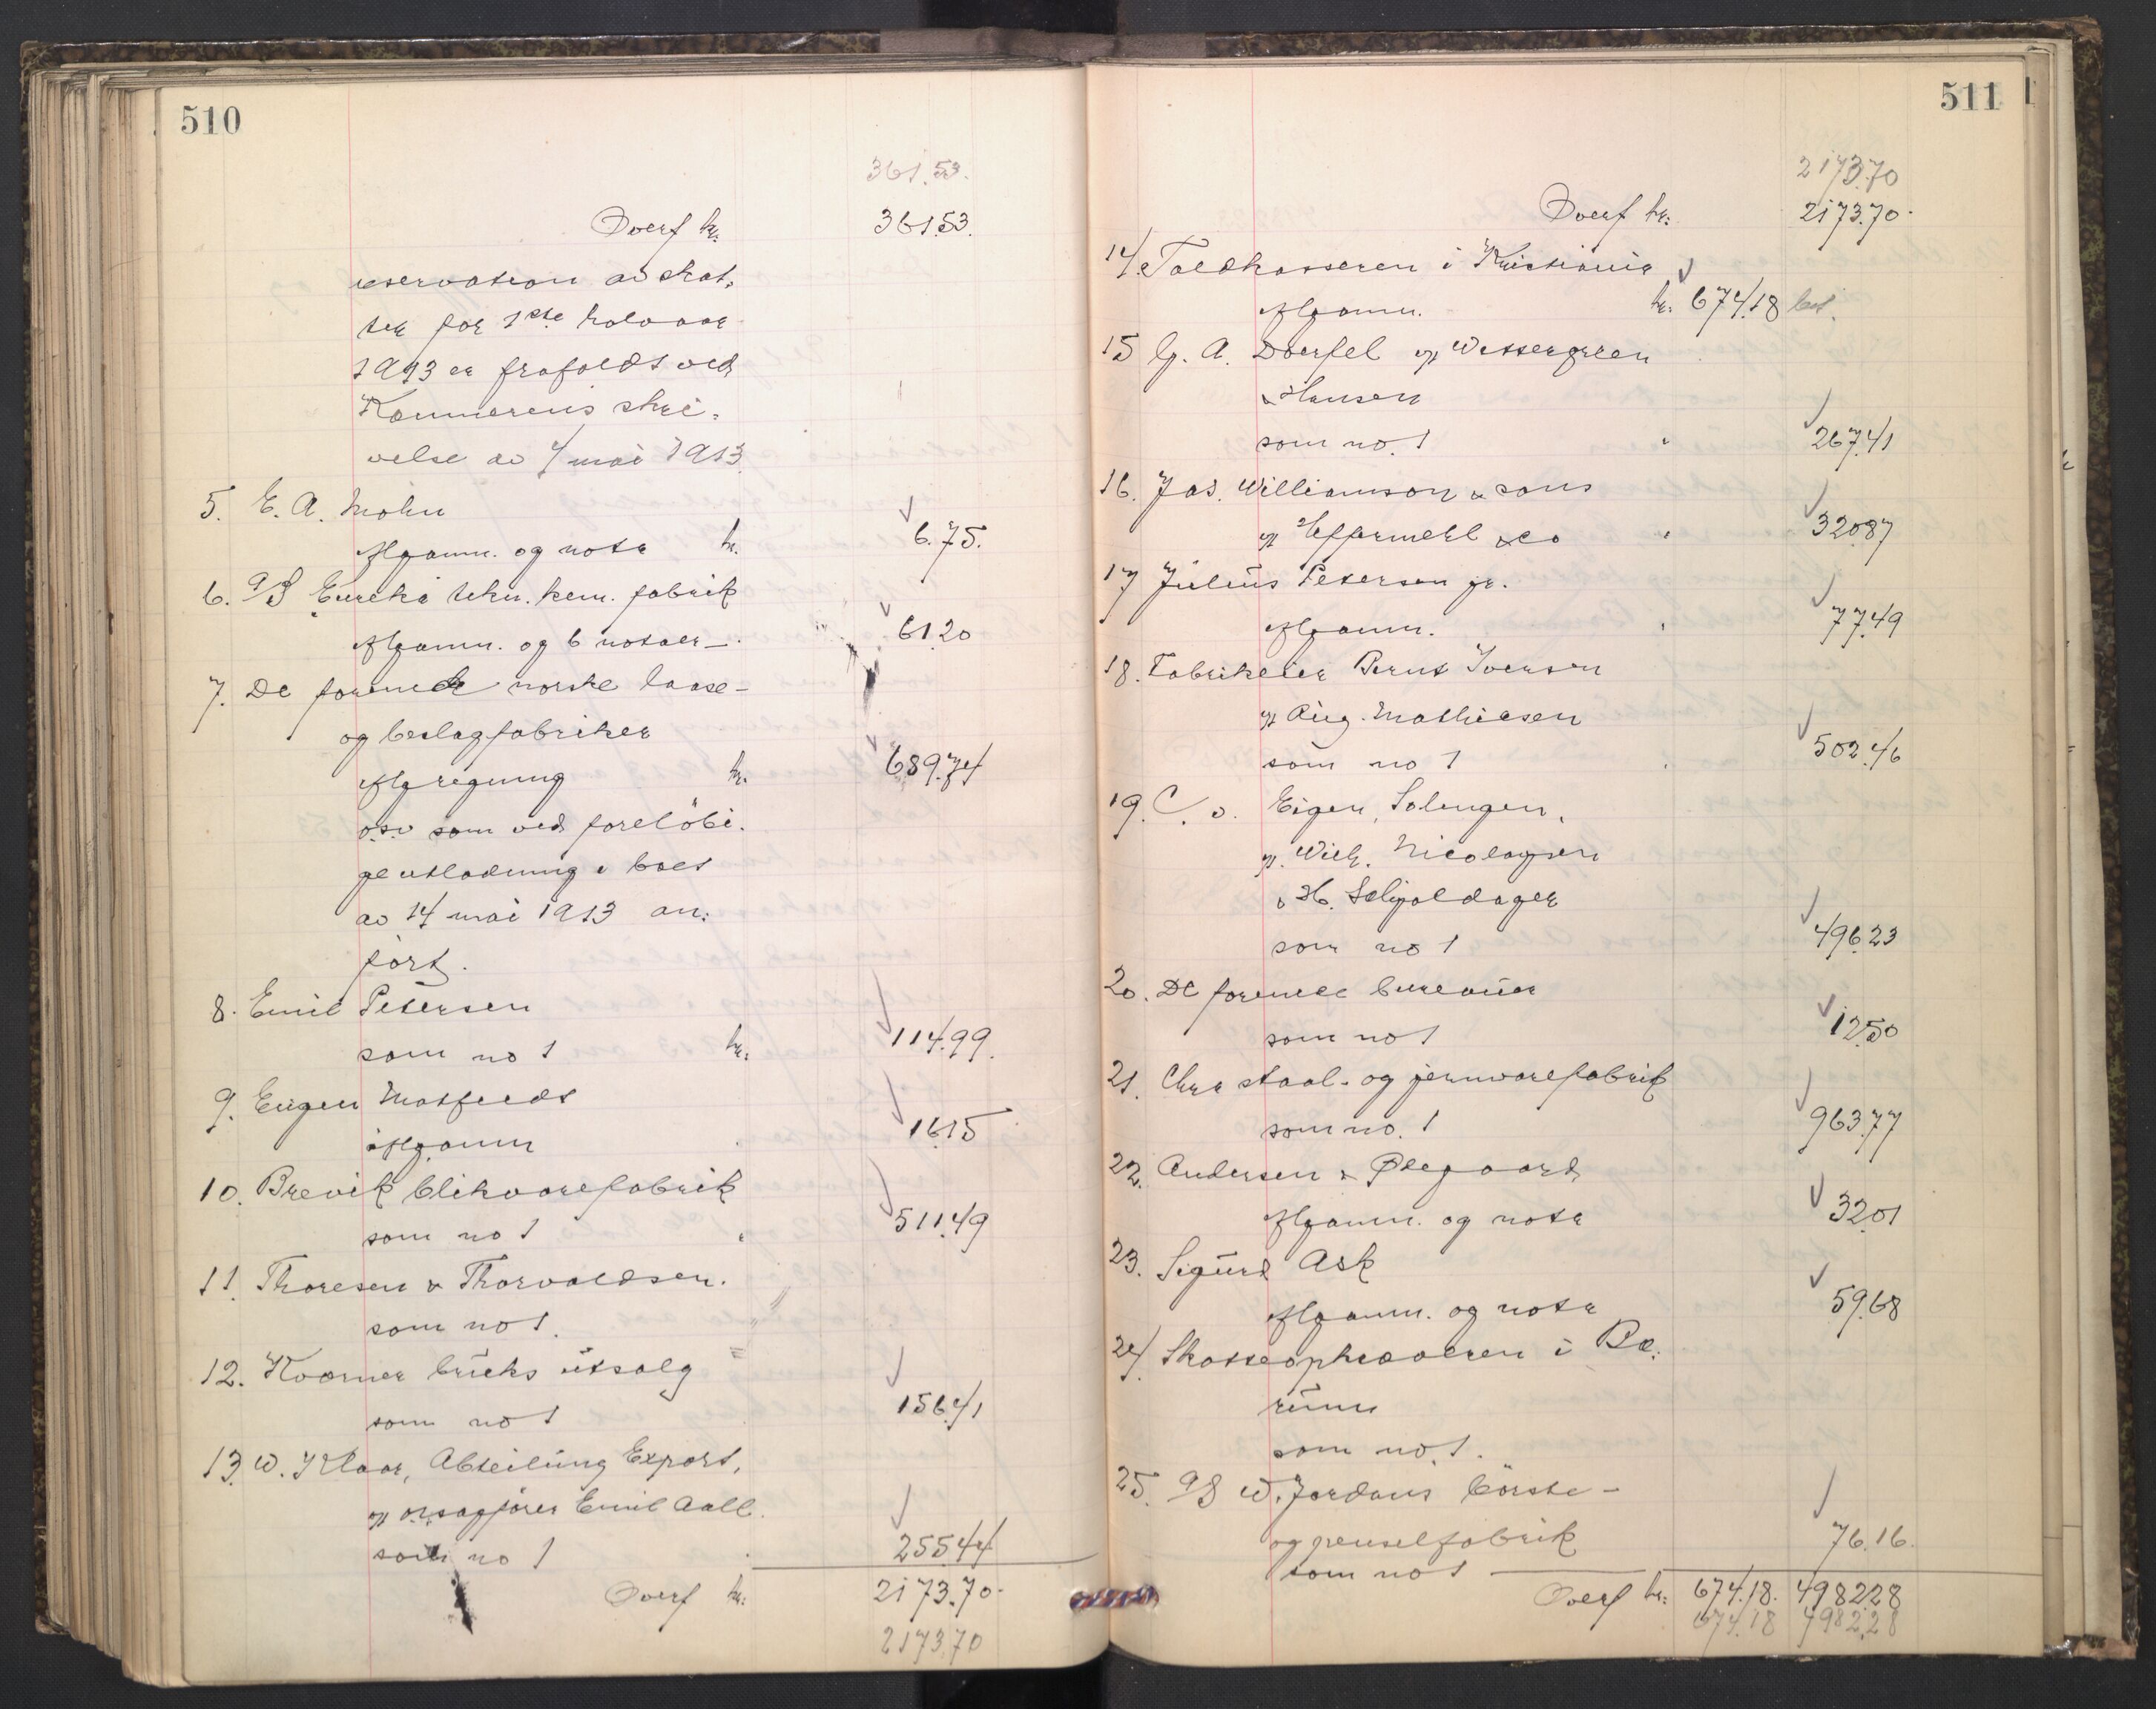 510
361.53.
Overf kr. 361.53.
reservation av skat-
ter for 1ste halvaar
1913 er frafaldt ved
Kæmnerens skri-
velse av 7 mai 1913.
5. E. A. Mohn
Afgjørn. og nota kr. 6.75.
6. A/S Eureka tekn. kem. fabrik
og 6 notaer 61.20
7. De forenede norske laase-
og beslagfabriker
Afregning kr. 689.74
osv som ved foreløbi-
ge utlodning i boet
av 14 mai 1913 an-
ført.
8. Emil Petersen
som no 1 kr. 114.99.
9. Eugen Matfeldt
16.15
10. Brevik blikvarefabrik
som no 1 511.49
11. Thoresen & Thorvaldsen.
som no 1. "
12. Kværner bruks utsalg
som no 1 156.41
13. W. Klaar, Abteilung Export,
v/ o.r.sagfører Emil Aall.
som no 1 255.44
Overf kr. 2173.70.
2173.70
511
2173.70
Overf kr. 2173.70.
14. Toldkasseren i Kristiania
kr. 674.18
15 G. A. Doerfel v/ Westergren
& Hansen
som no. 1 " 267.41
16. Jas. Williamson & sons
v/ Heffermehl & Co " 320.87
17 Julius Petersen jr.
" 77.49
18. Fabrikeier Bernt Iversen
v/ Aug. Mathiesen
som no 1 " 502.46
19. C. v. Eigen, Solingen,
v/ Wilh. Nicolaysen
v H. Schjoldager
som no 1 496.23
20. De forenede bureauer
som no 1 12.50
21. Chra staal- og jernvarefabrik
som no. 1 963.77
22. Andersen & Ødegaard
og nota 32.01
23. Sigurd Ask
og nota 59.68
24. Skatteopkræveren i Bæ-
rum
som no. 1.
25. A/S W. Jordans børste-
og penselfabrik 76.16.
som no 1
Overf kr. 674.18. 4982.28
674.18 4982.28